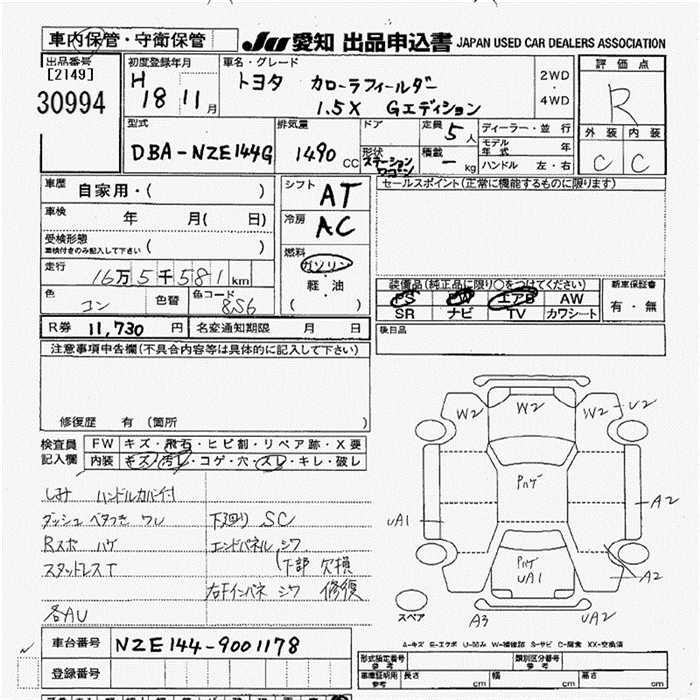 車内保管・守衛保管
JU 愛知 出品申込書 JAPAN USED CAR DEALERS ASSOCIATION
出品番号
[2149]
30994
初度登録年月
H 18 11月
車名・グレード
トヨタ カローラフィールダー
1.5X Gエディション
2WD
・
4WD
評価点
R
外装 内装
C C
型式
DBA-NZE144G
排気量
1490 CC
ドア
形状
ステーションワゴン
定員 5人
積載 - kg
ディーラー・並行
モデル年式 年
ハンドル 左・右
車歴
自家用・( )
車検 年 月( 日)
受検形態
車検付きのみ記入して下さい ( )
走行
16万5千581km
色 コン 色替 色コード 8S6
シフト AT
冷房 AC
燃料
ガソリン
軽・油
( )
セールスポイント(正常に機能するものに限ります)
装備品(純正品に限り○をつけてください)
PS PW エアB AW
SR ナビ TV カワシート
新車保証書
有・無
後日品
R券 11,730 円 名変通知期限 月 日
注意事項申告欄(不具合内容等は具体的に記入して下さい)
修復歴 有 (箇所 )
検査員
記入欄
FW キズ・飛石・ヒビ割・リペア跡・X要
内装 キズ・汚レ・コゲ・穴・スレ・キレ・破レ
しみ ハンドルカバー付
ダッシュ ベタつき ワレ 下廻り SC
Rスポ ハゲ エンドパネル シワ
スタッドレスT (下部 欠損
右Fインパネ シワ 修復
各AU
W2 W2 W2 U2
ハゲ
A2
UA1
ハゲ
UA1
A2
スペア A3 UA2
A-キズ E-エクボ U-凹み W-補修跡 S-サビ C-腐食 XX-交換済
車台番号 NZE144-9001178
登録番号
形式指定番号
参考
類別区分番号
参考
車庫証明用
参考
長さ cm 幅 cm 高さ cm